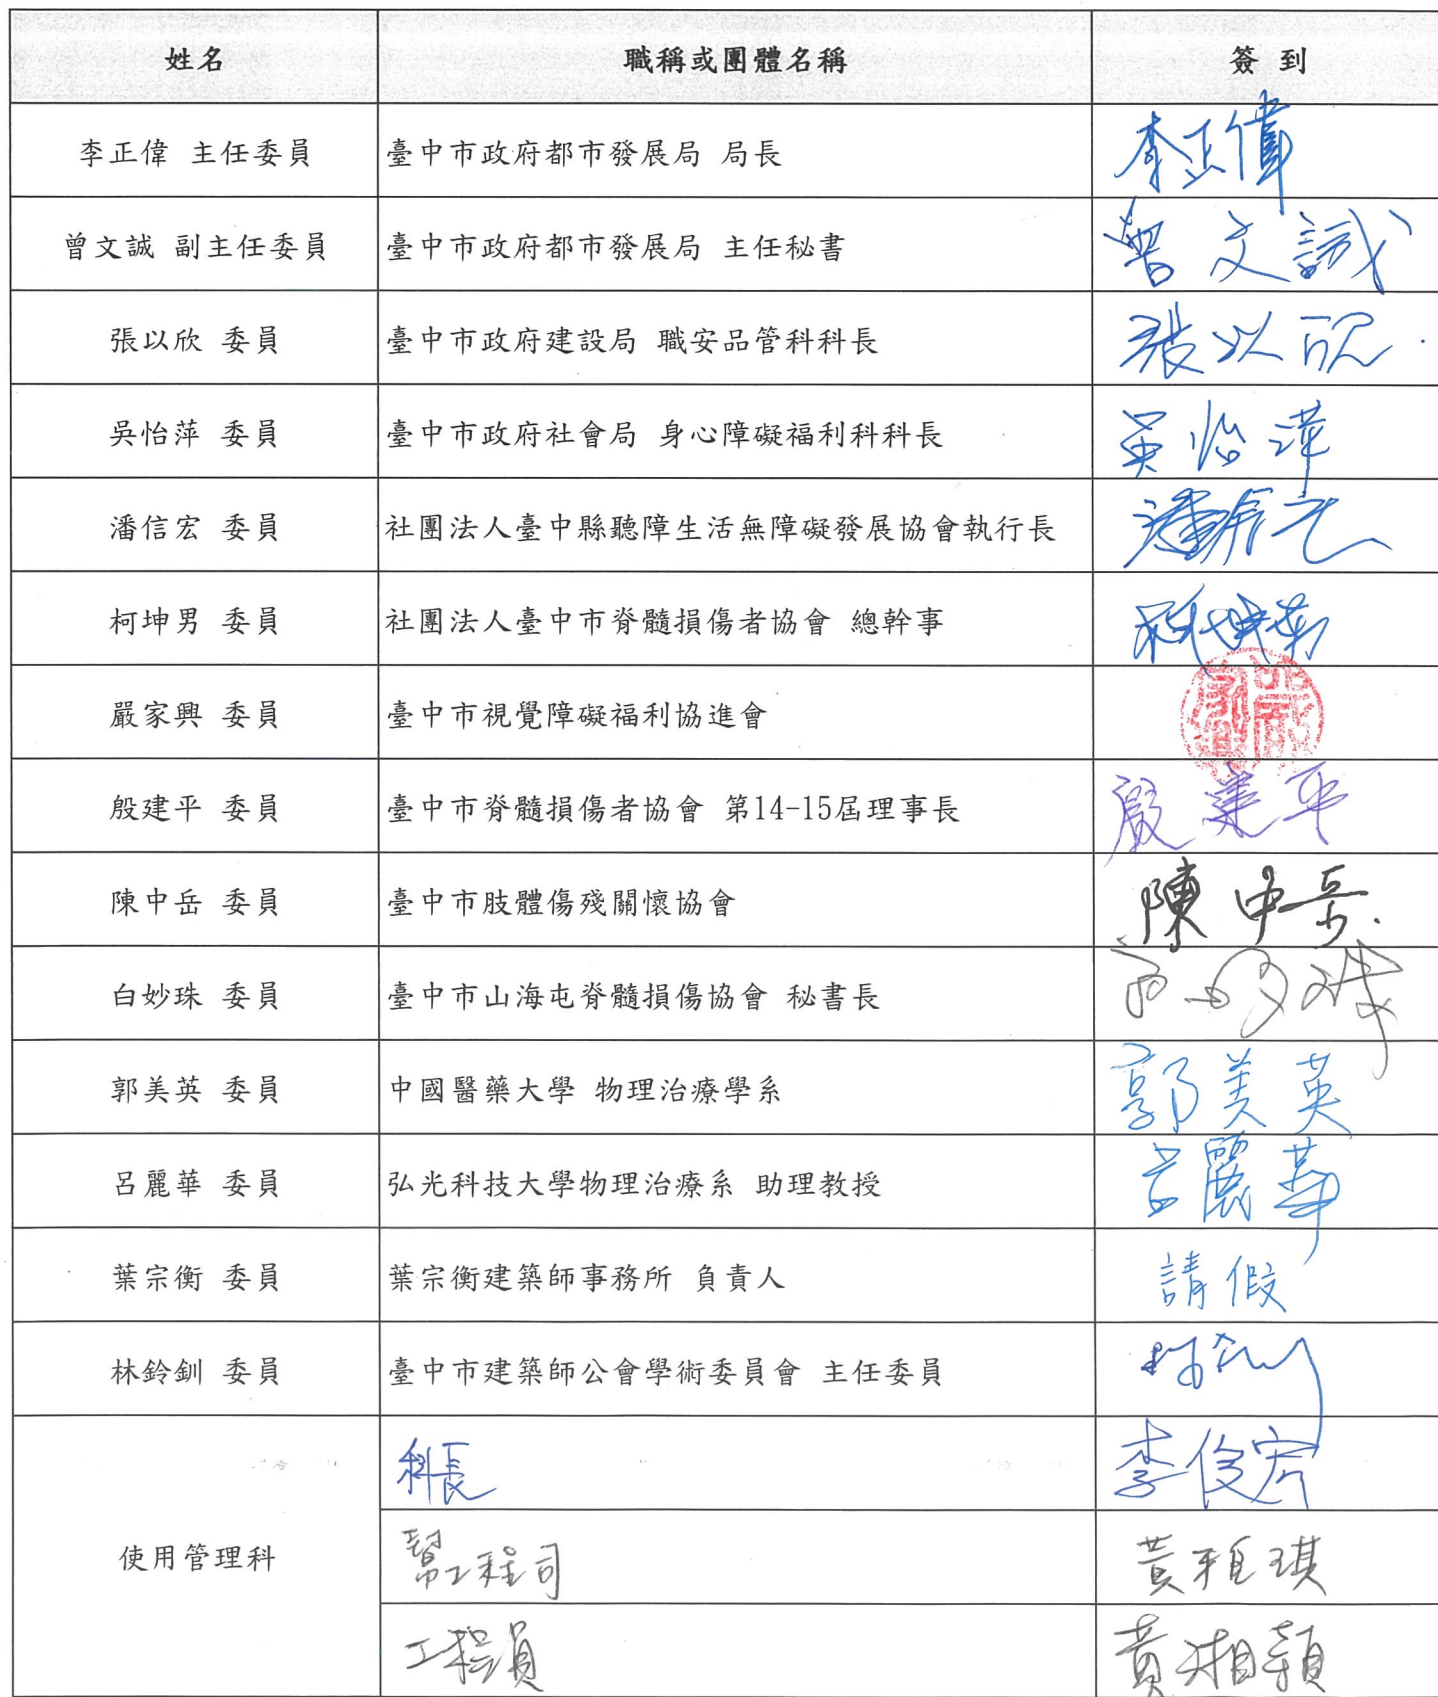 姓名 職稱或團體名稱 簽 到
李正偉 主任委員 臺中市政府都市發展局 局長 李正偉
曾文誠 副主任委員 臺中市政府都市發展局 主任秘書 曾文誠
張以欣 委員 臺中市政府建設局 職安品管科科長 張以欣
吳怡萍 委員 臺中市政府社會局 身心障礙福利科科長 吳怡萍
潘信宏 委員 社團法人臺中縣聽障生活無障礙發展協會執行長 潘信宏
柯坤男 委員 社團法人臺中市脊髓損傷者協會 總幹事 柯坤男
嚴家興 委員 臺中市視覺障礙福利協進會
殷建平 委員 臺中市脊髓損傷者協會 第14-15屆理事長 殷建平
陳中岳 委員 臺中市肢體傷殘關懷協會 陳中岳
白妙珠 委員 臺中市山海屯脊髓損傷協會 秘書長 白妙珠
郭美英 委員 中國醫藥大學 物理治療學系 郭美英
呂麗華 委員 弘光科技大學物理治療系 助理教授 呂麗華
葉宗衡 委員 葉宗衡建築師事務所 負責人 請假
林鈴釧 委員 臺中市建築師公會學術委員會 主任委員
使用管理科
科長 李俊宏
幫工程司 黃雅琪
工程員 黃湘穎